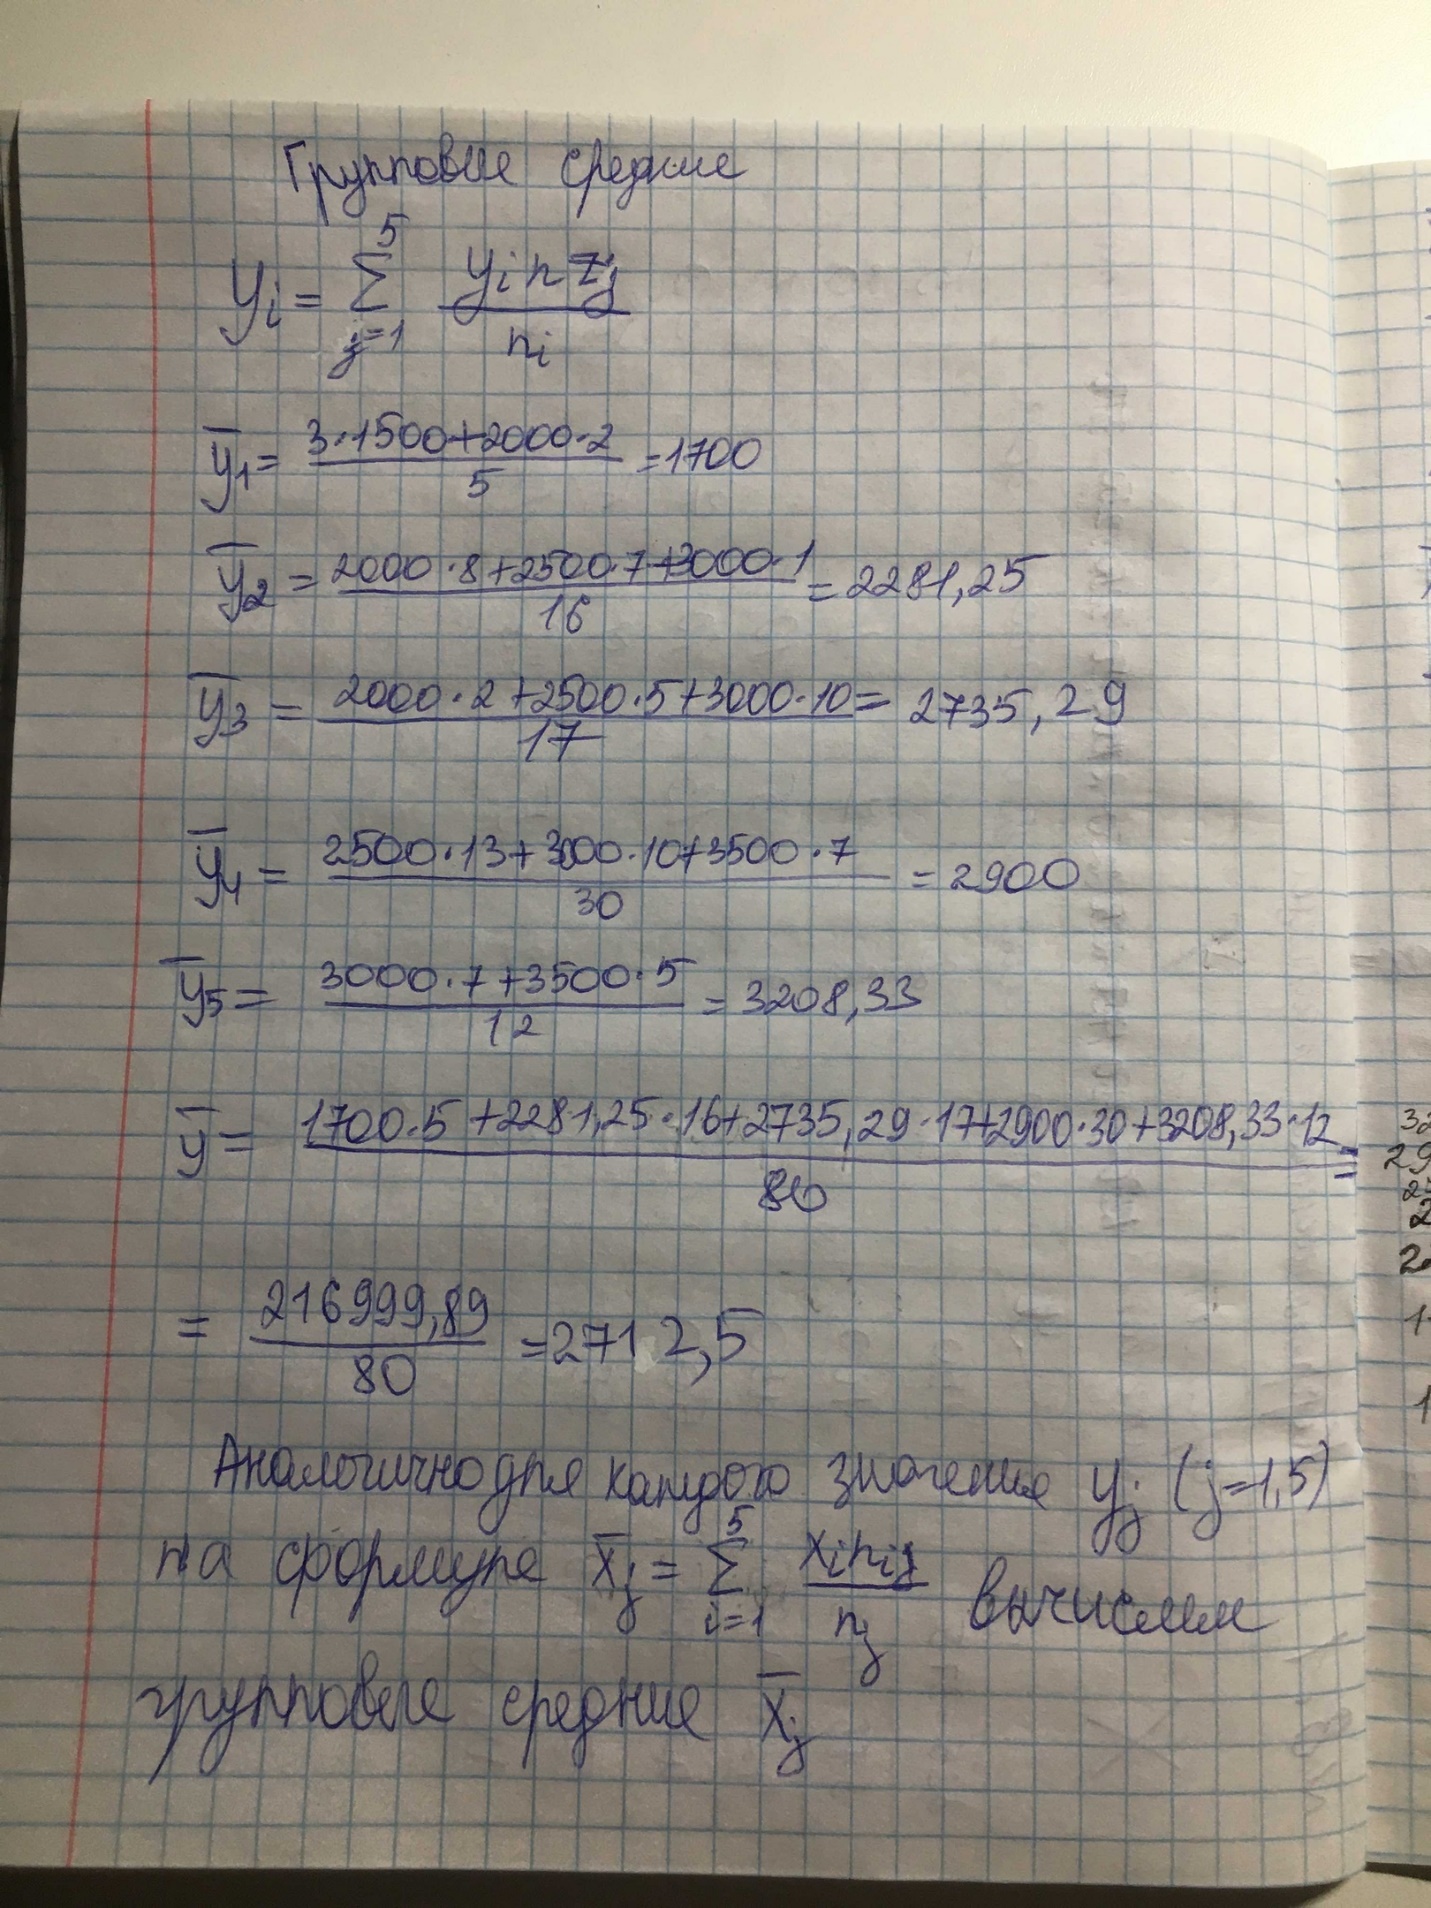 Групповые средние
yi = 5 Σ j=1 yi n zj / ni
y̅1 = 3·1500+2000·2 / 5 = 1700
y̅2 = 2000·8+2500·7+3000·1 / 16 = 2281,25
y̅3 = 2000·2+2500·5+3000·10 / 17 = 2735,29
y̅4 = 2500·13+3000·10+3500·7 / 30 = 2900
y̅5 = 3000·7+3500·5 / 12 = 3208,33
y̅ = 1700·5+2281,25·16+2735,29·17+2900·30+3208,33·12 / 80 =
= 216999,89 / 80 = 2712,5
Аналогично для каждого значения yj (j=1,5)
па формуле x̅j = 5 Σ i=1 xi nij / nj вычислим
групповые средние x̅j